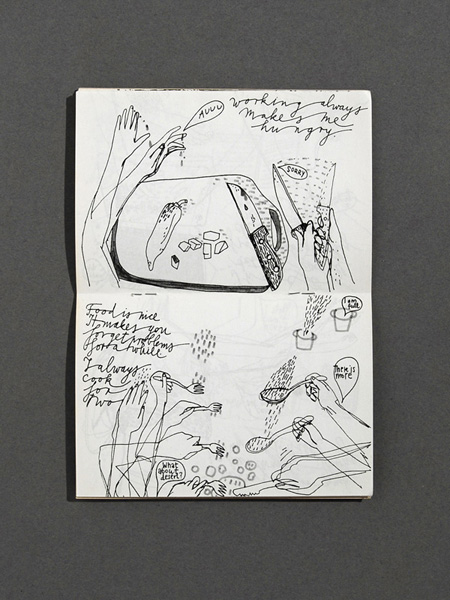 working always
makes me
hungry.
AUUU
SORRY
Food is nice
It makes you
forget problems
for a while
I always
cook
for
two
I am
full
There is
more
What
about
desert?